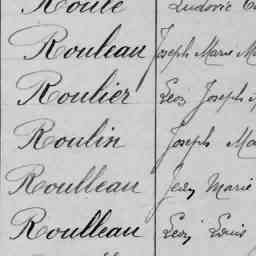 Roulé Ludovic
Rouleau Joseph Marie
Roulier Léon Joseph
Roulin Joseph
Roulleau Jean Marie
Roulleau Léon Louis